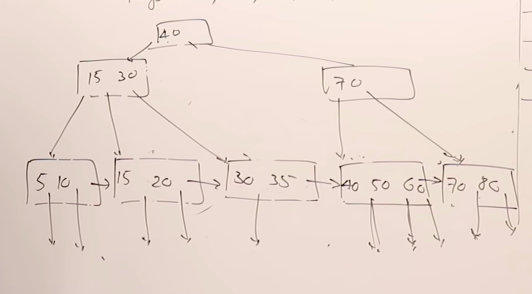 40
15 30
70
5 10
15 20
30 35
40 50 60
70 80